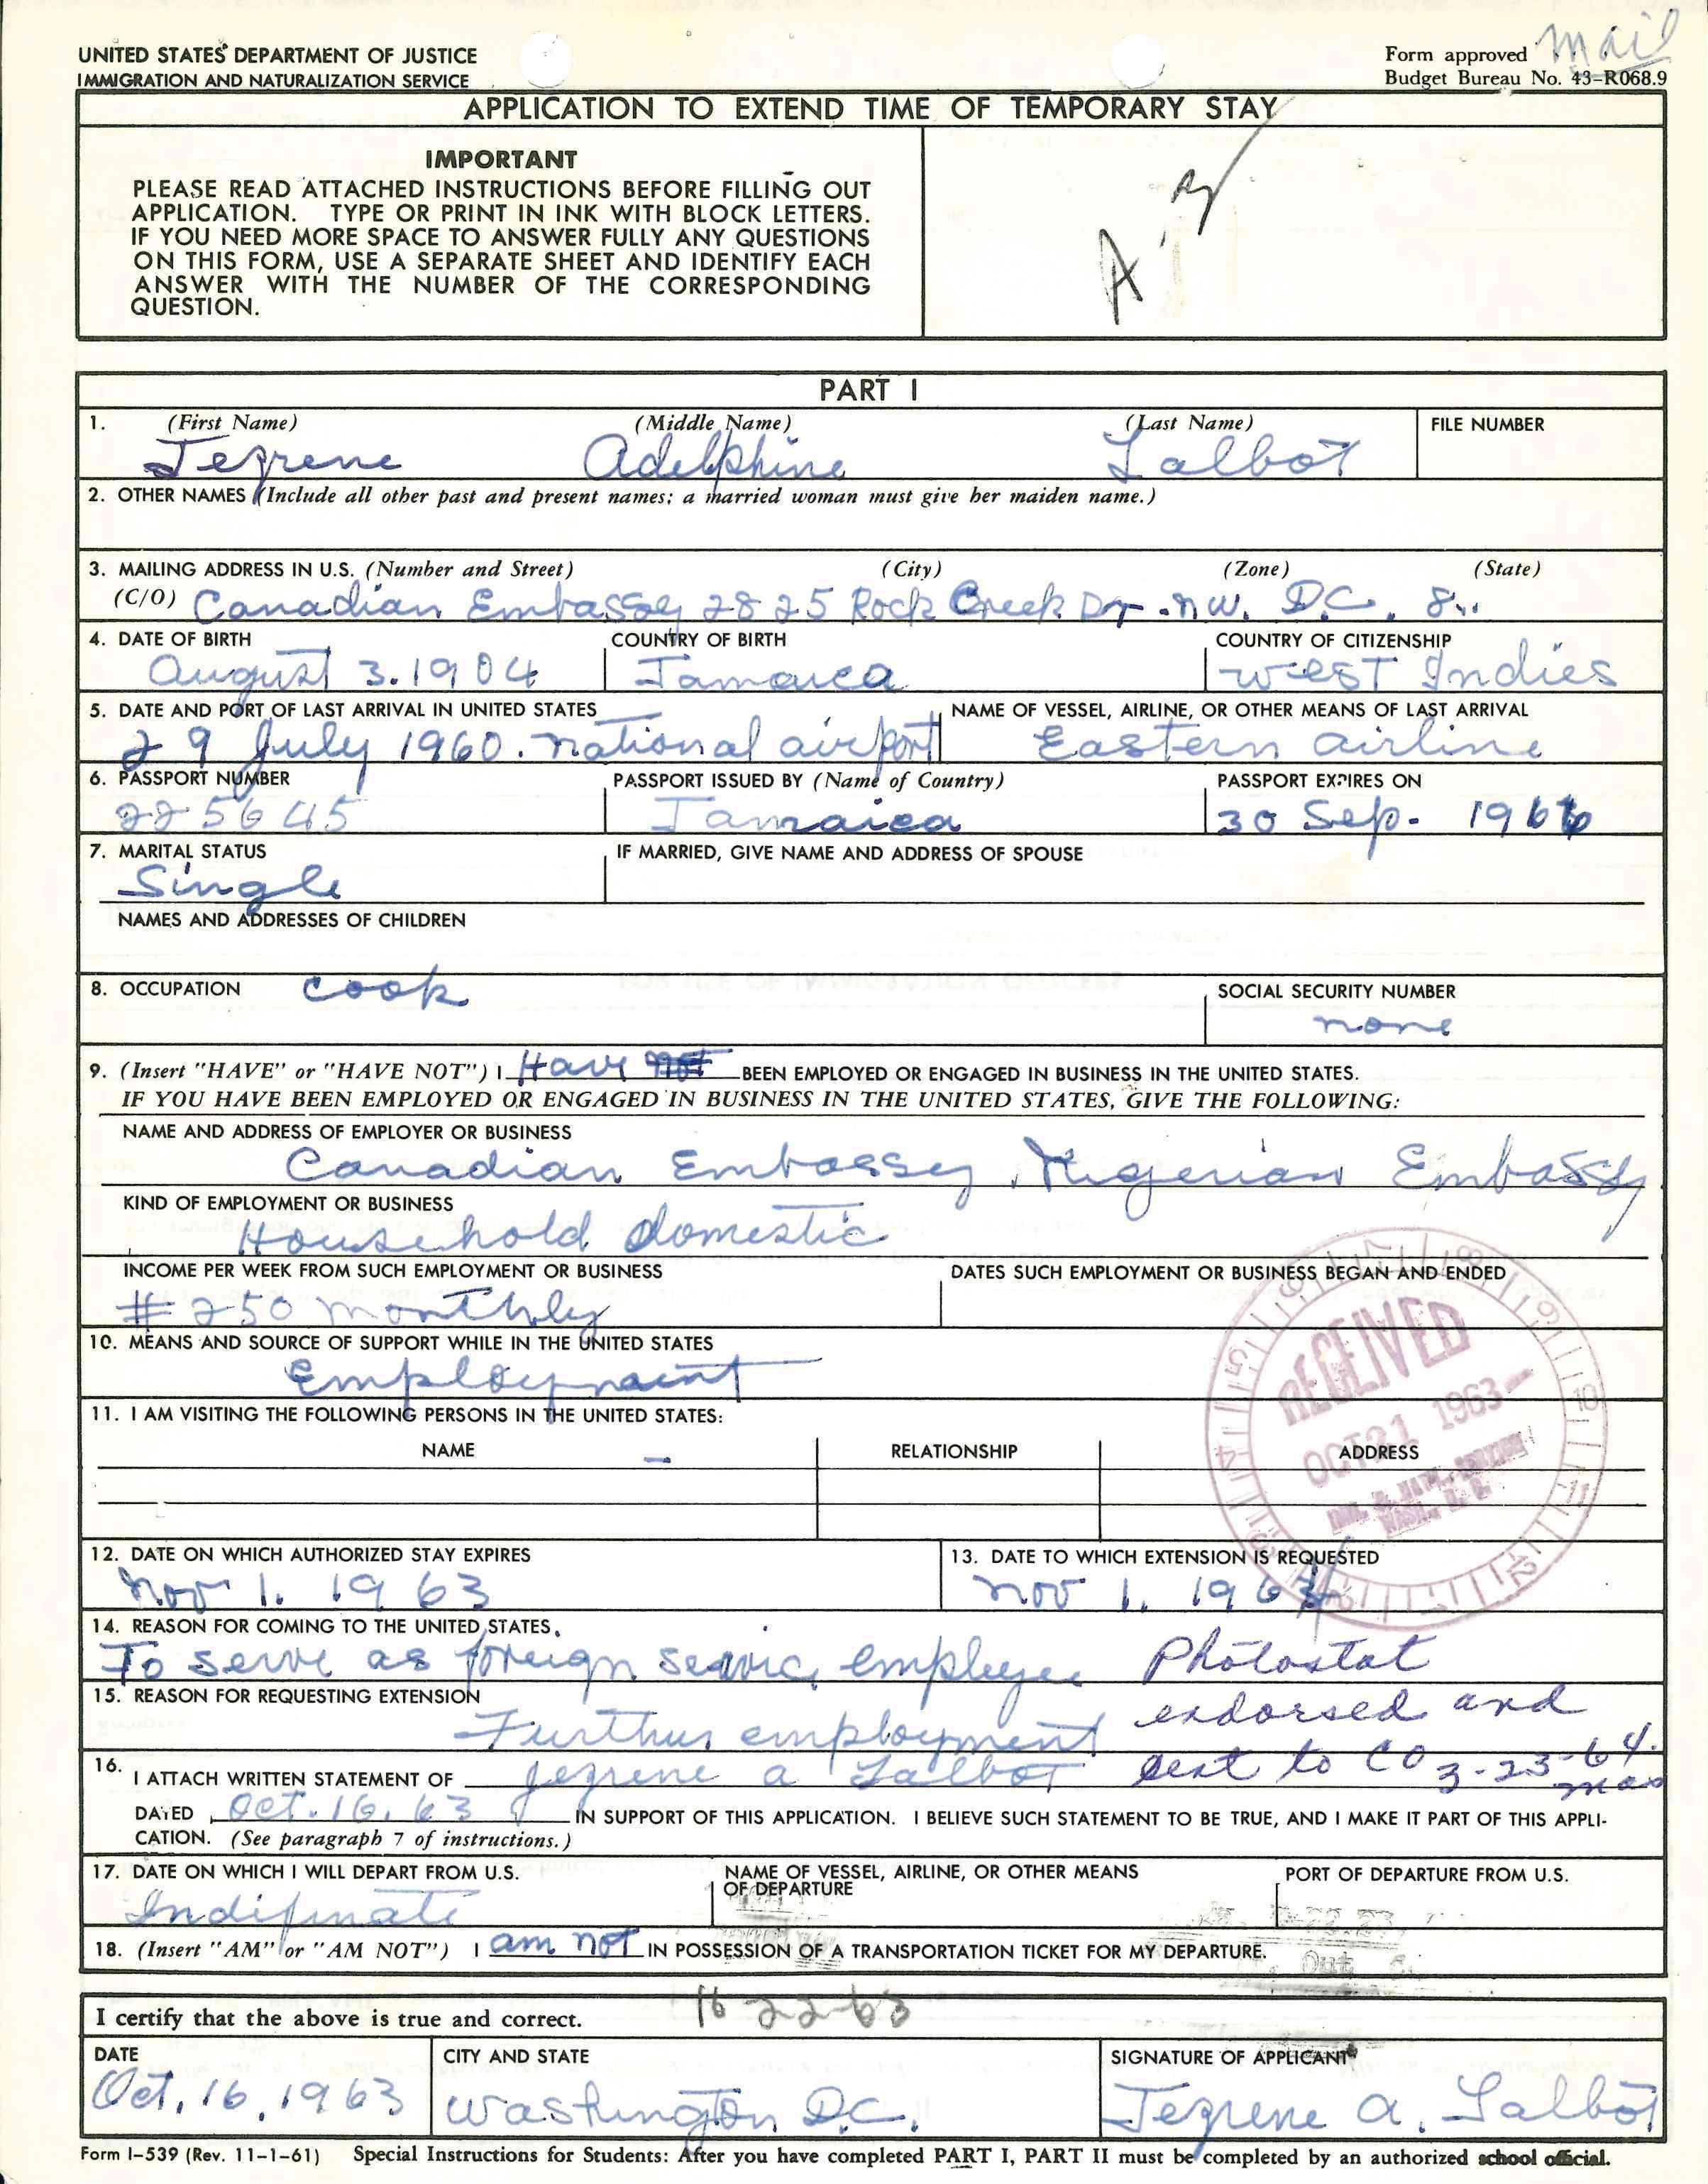 mail
UNITED STATES DEPARTMENT OF JUSTICE
IMMIGRATION AND NATURALIZATION SERVICE
Form approved
Budget Bureau No. 43-R068.9
APPLICATION TO EXTEND TIME OF TEMPORARY STAY
IMPORTANT
PLEASE READ ATTACHED INSTRUCTIONS BEFORE FILLING OUT
APPLICATION. TYPE OR PRINT IN INK WITH BLOCK LETTERS.
IF YOU NEED MORE SPACE TO ANSWER FULLY ANY QUESTIONS
ON THIS FORM, USE A SEPARATE SHEET AND IDENTIFY EACH
ANSWER WITH THE NUMBER OF THE CORRESPONDING
QUESTION.
PART I
1. (First Name) (Middle Name) (Last Name) FILE NUMBER
Jezrene Adelphine Talbot
2. OTHER NAMES (Include all other past and present names; a married woman must give her maiden name.)
3. MAILING ADDRESS IN U.S. (Number and Street) (City) (Zone) (State)
(C/O) Canadian Embassy 2825 Rock Creek Dr. N.W. D.C. 8.
4. DATE OF BIRTH COUNTRY OF BIRTH COUNTRY OF CITIZENSHIP
August 3. 1904 Jamaica West Indies
5. DATE AND PORT OF LAST ARRIVAL IN UNITED STATES NAME OF VESSEL, AIRLINE, OR OTHER MEANS OF LAST ARRIVAL
29 July 1960. national airport Eastern airline
6. PASSPORT NUMBER PASSPORT ISSUED BY (Name of Country) PASSPORT EXPIRES ON
225645 Jamaica 30 Sep. 1966
7. MARITAL STATUS IF MARRIED, GIVE NAME AND ADDRESS OF SPOUSE
Single
NAMES AND ADDRESSES OF CHILDREN
8. OCCUPATION cook SOCIAL SECURITY NUMBER
none
9. (Insert "HAVE" or "HAVE NOT") I Have BEEN EMPLOYED OR ENGAGED IN BUSINESS IN THE UNITED STATES.
IF YOU HAVE BEEN EMPLOYED OR ENGAGED IN BUSINESS IN THE UNITED STATES, GIVE THE FOLLOWING:
NAME AND ADDRESS OF EMPLOYER OR BUSINESS
Canadian Embassy, Nigerian Embassy
KIND OF EMPLOYMENT OR BUSINESS
Household domestic
INCOME PER WEEK FROM SUCH EMPLOYMENT OR BUSINESS DATES SUCH EMPLOYMENT OR BUSINESS BEGAN AND ENDED
# 250 monthly
10. MEANS AND SOURCE OF SUPPORT WHILE IN THE UNITED STATES
Employmaint
RECEIVED
OCT 21 1963
WASH., D. C.
11. I AM VISITING THE FOLLOWING PERSONS IN THE UNITED STATES:
NAME RELATIONSHIP ADDRESS
12. DATE ON WHICH AUTHORIZED STAY EXPIRES 13. DATE TO WHICH EXTENSION IS REQUESTED
Nov 1. 1963 Nov 1. 1964
14. REASON FOR COMING TO THE UNITED STATES.
To serve as foreign service employee
Photostat
endorsed and
sent to CO 3-23-64.
15. REASON FOR REQUESTING EXTENSION
Further employment
16. I ATTACH WRITTEN STATEMENT OF Jezrene a Talbot
DATED Oct. 16. 63 IN SUPPORT OF THIS APPLICATION. I BELIEVE SUCH STATEMENT TO BE TRUE, AND I MAKE IT PART OF THIS APPLI-
CATION. (See paragraph 7 of instructions.)
17. DATE ON WHICH I WILL DEPART FROM U.S. NAME OF VESSEL, AIRLINE, OR OTHER MEANS OF DEPARTURE PORT OF DEPARTURE FROM U.S.
Indifinate
18. (Insert "AM" or "AM NOT") I am not IN POSSESSION OF A TRANSPORTATION TICKET FOR MY DEPARTURE.
I certify that the above is true and correct. 10 22-63
DATE CITY AND STATE SIGNATURE OF APPLICANT
Oct. 16. 1963 Washington D.C. Jezrene a. Talbot
Form I-539 (Rev. 11-1-61) Special Instructions for Students: After you have completed PART I, PART II must be completed by an authorized school official.